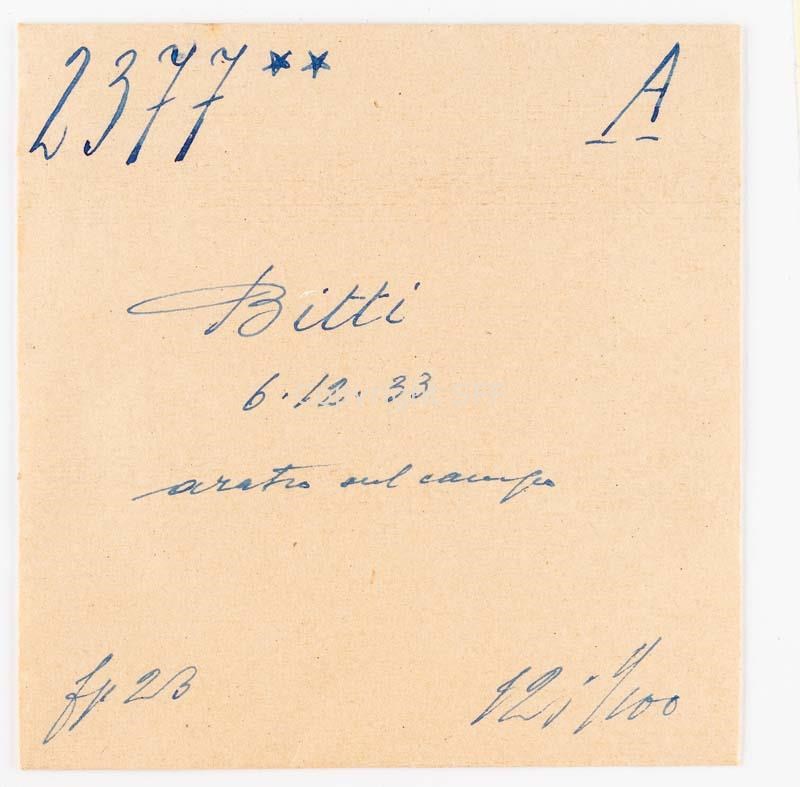 2377** A
Bitti
6.12.33
aratro sul campo
fp 23